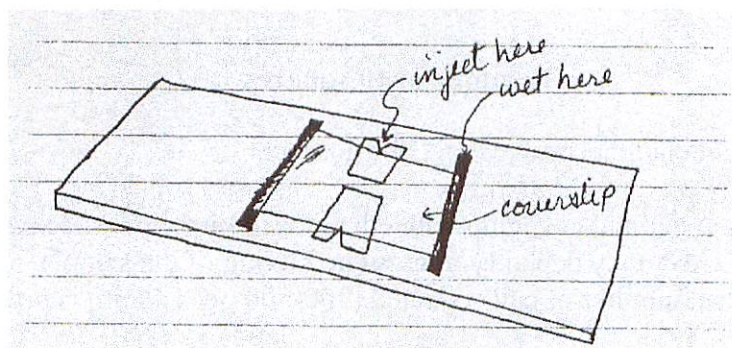 inject here
wet here
coverslip